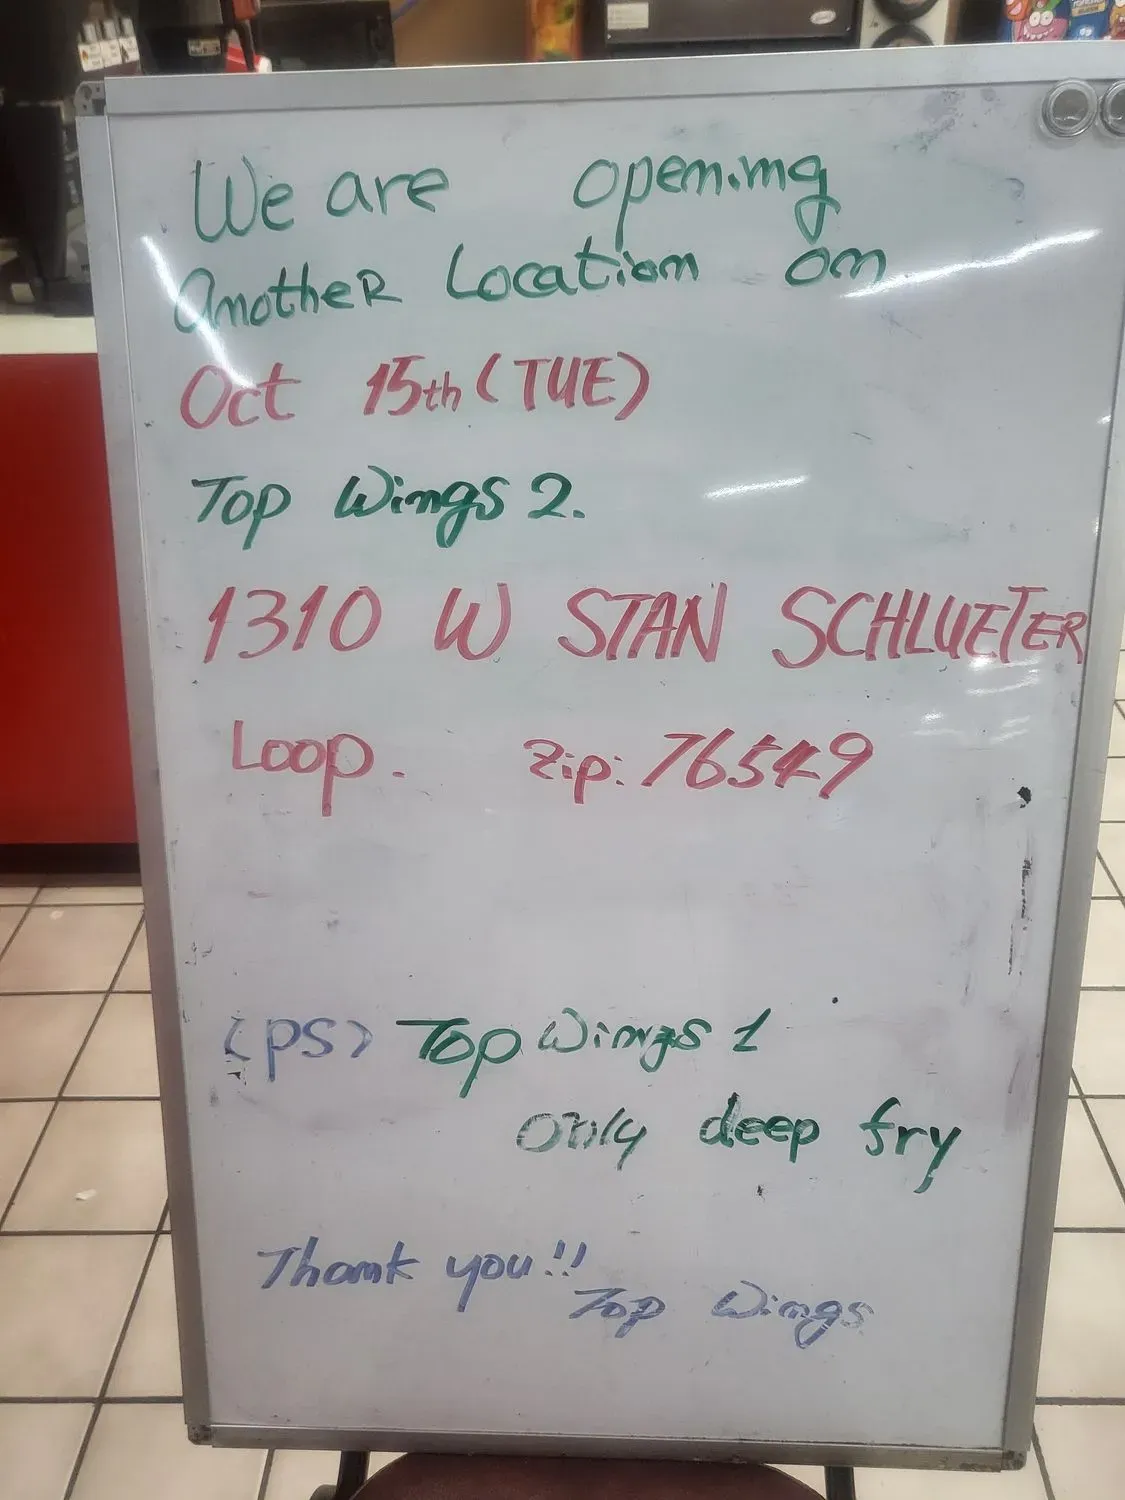 We are opening
another Location on
Oct 15th (TUE)
Top Wings 2.
1310 W STAN SCHLUETER
Loop. Zip: 76549
(PS) Top Wings 1
Only deep fry
Thank you!!
Top Wings